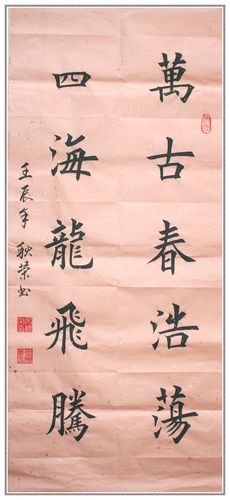 萬古春浩蕩
四海龍飛騰
壬辰年秋榮书